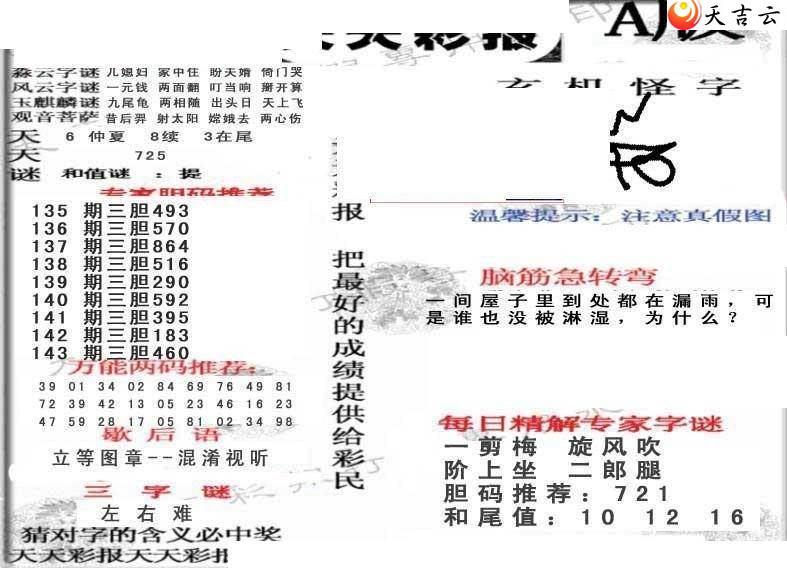 天吉云
天天彩报
A版
淼云字谜 儿媳妇 家中住 盼天婿 倚门哭
风云字谜 一元钱 两面翻 叮当响 掰开算
玉麒麟谜 九尾龟 两相随 出头日 天上飞
观音菩萨 昔后羿 射太阳 嫦娥去 两心伤
天 6 仲夏 8续 3在尾
天 725
谜 和值谜 : 提
专家胆码推荐
135 期三胆493
136 期三胆570
137 期三胆864
138 期三胆516
139 期三胆290
140 期三胆592
141 期三胆395
142 期三胆183
143 期三胆460
万能两码推荐:
39 01 34 02 84 69 76 49 81
72 39 42 13 05 23 46 16 23
47 59 28 17 05 81 02 34 98
歇后语
立等图章--混淆视听
三字谜
左右难
猜对字的含义必中奖
天天彩报天天彩报
报 把最好的成绩提供给彩民
玄机怪字
温馨提示: 注意真假图
脑筋急转弯
一间屋子里到处都在漏雨，可
是谁也没被淋湿，为什么？
每日精解专家字谜
一剪梅 旋风吹
阶上坐 二郎腿
胆码推荐：721
和尾值：10 12 16